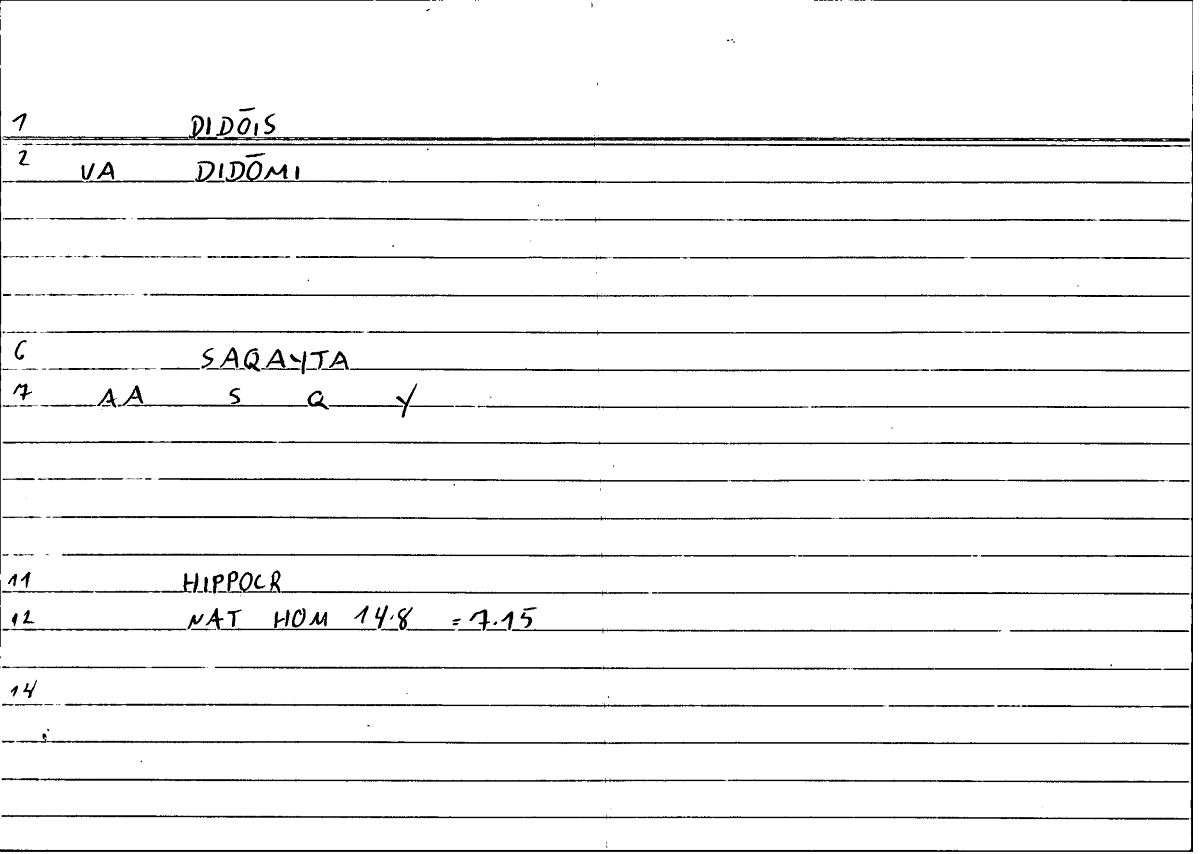 1 DIDŌIS
2 VA DIDŌMI
6 SAQAYTA
7 AA S Q Y
11 HIPPOCR
12 NAT HOM 14.8 = 7.15
14